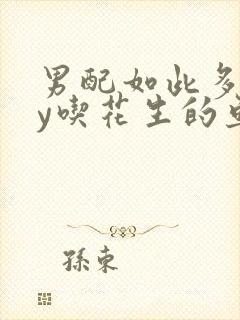 男配如此多
y喫花生的
孫東